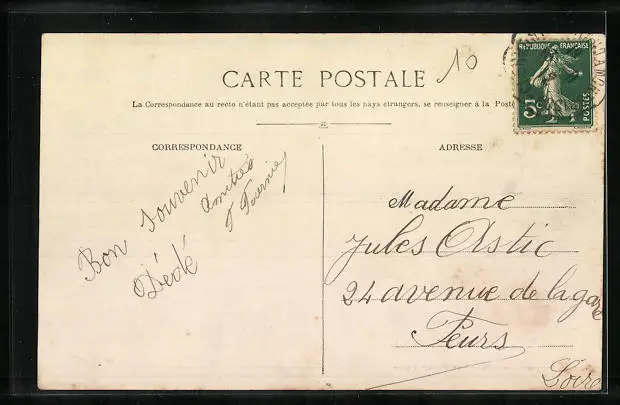 10
CARTE POSTALE
La Correspondance au recto n'étant pas acceptée par tous les pays étrangers, se renseigner à la Poste
RÉPUBLIQUE FRANÇAISE
5c
POSTES
CORRESPONDANCE
ADRESSE
Bon souvenir
Dédé
Amitiés
Madame
Jules Astic
24 avenue de la gare
Feurs
Loire